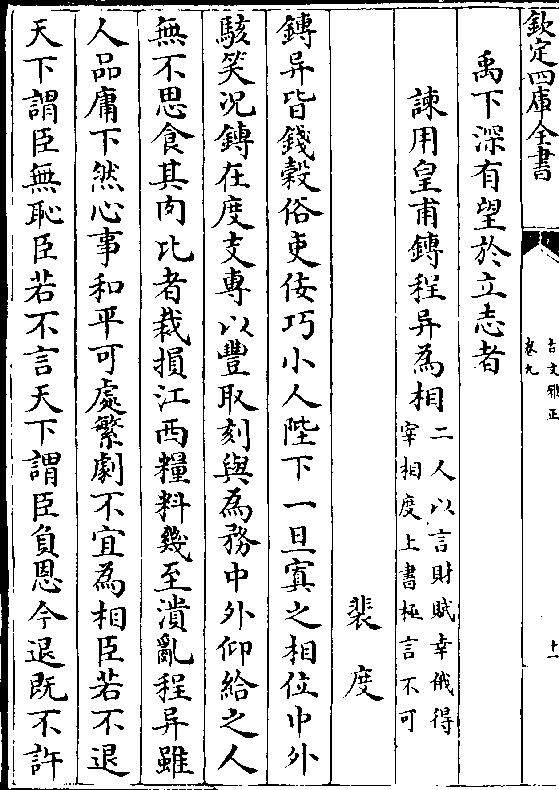 欽定四庫全書
古文雅正
卷九
十一
禹下深有望於立志者
諫用皇甫鎛程异為相二人以言財賦幸俄得
宰相度上書極言不可
裴度
鎛异皆錢穀俗吏佞巧小人陛下一旦寘之相位中外
駭笑況鎛在度支專以豐取刻與為務中外仰給之人
無不思食其肉比者裁損江西糧料幾至潰亂程异雖
人品庸下然心事和平可處繁劇不宜為相臣若不退
天下謂臣無恥臣若不言天下謂臣負恩今退既不許